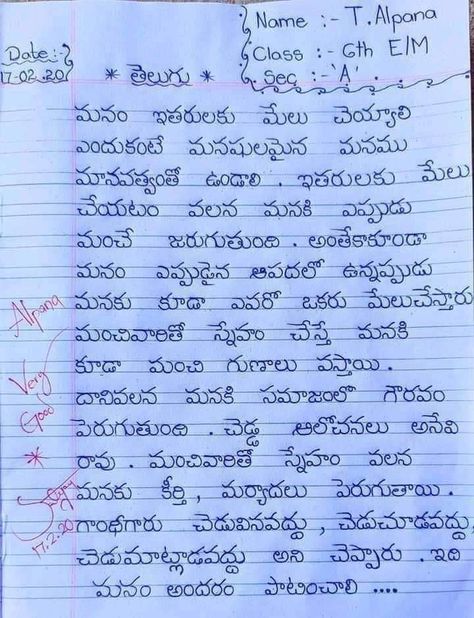 Name :- T. Alpana
Class :- 6th E/M
Sec :- 'A'.
Date :-
17-02.20
* తెలుగు *
మనం ఇతరులకు మేలు చెయ్యాలి
ఎందుకంటే మనషులమైన మనము
మానవత్వంతో ఉండాలి . ఇతరులకు మేలు
చేయటం వలన మనకి ఎప్పుడు
మంచే జరుగుతుంది . అంతేకాకుండా
మనం ఎప్పుడైన ఆపదలో ఉన్నప్పుడు
మనకు కూడా ఎవరో ఒకరు మేలుచేస్తారు
మంచివారితో స్నేహం చేస్తే మనకి
కూడా మంచి గుణాలు వస్తాయి .
దానివలన మనకి సమాజంలో గౌరవం
పెరుగుతుంది . చెడ్డ ఆలోచనలు అనేవి
రావు . మంచివారితో స్నేహం వలన
మనకు కీర్తి , మర్యాదలు పెరుగుతాయి .
గాంధీగారు చెడువినవద్దు , చెడుచూడవద్దు,
చెడుమాట్లాడవద్దు అని చెప్పారు . ఇది
మనం అందరం పాటించాలి ....
Alpana
Very
Good
*
17.2.20